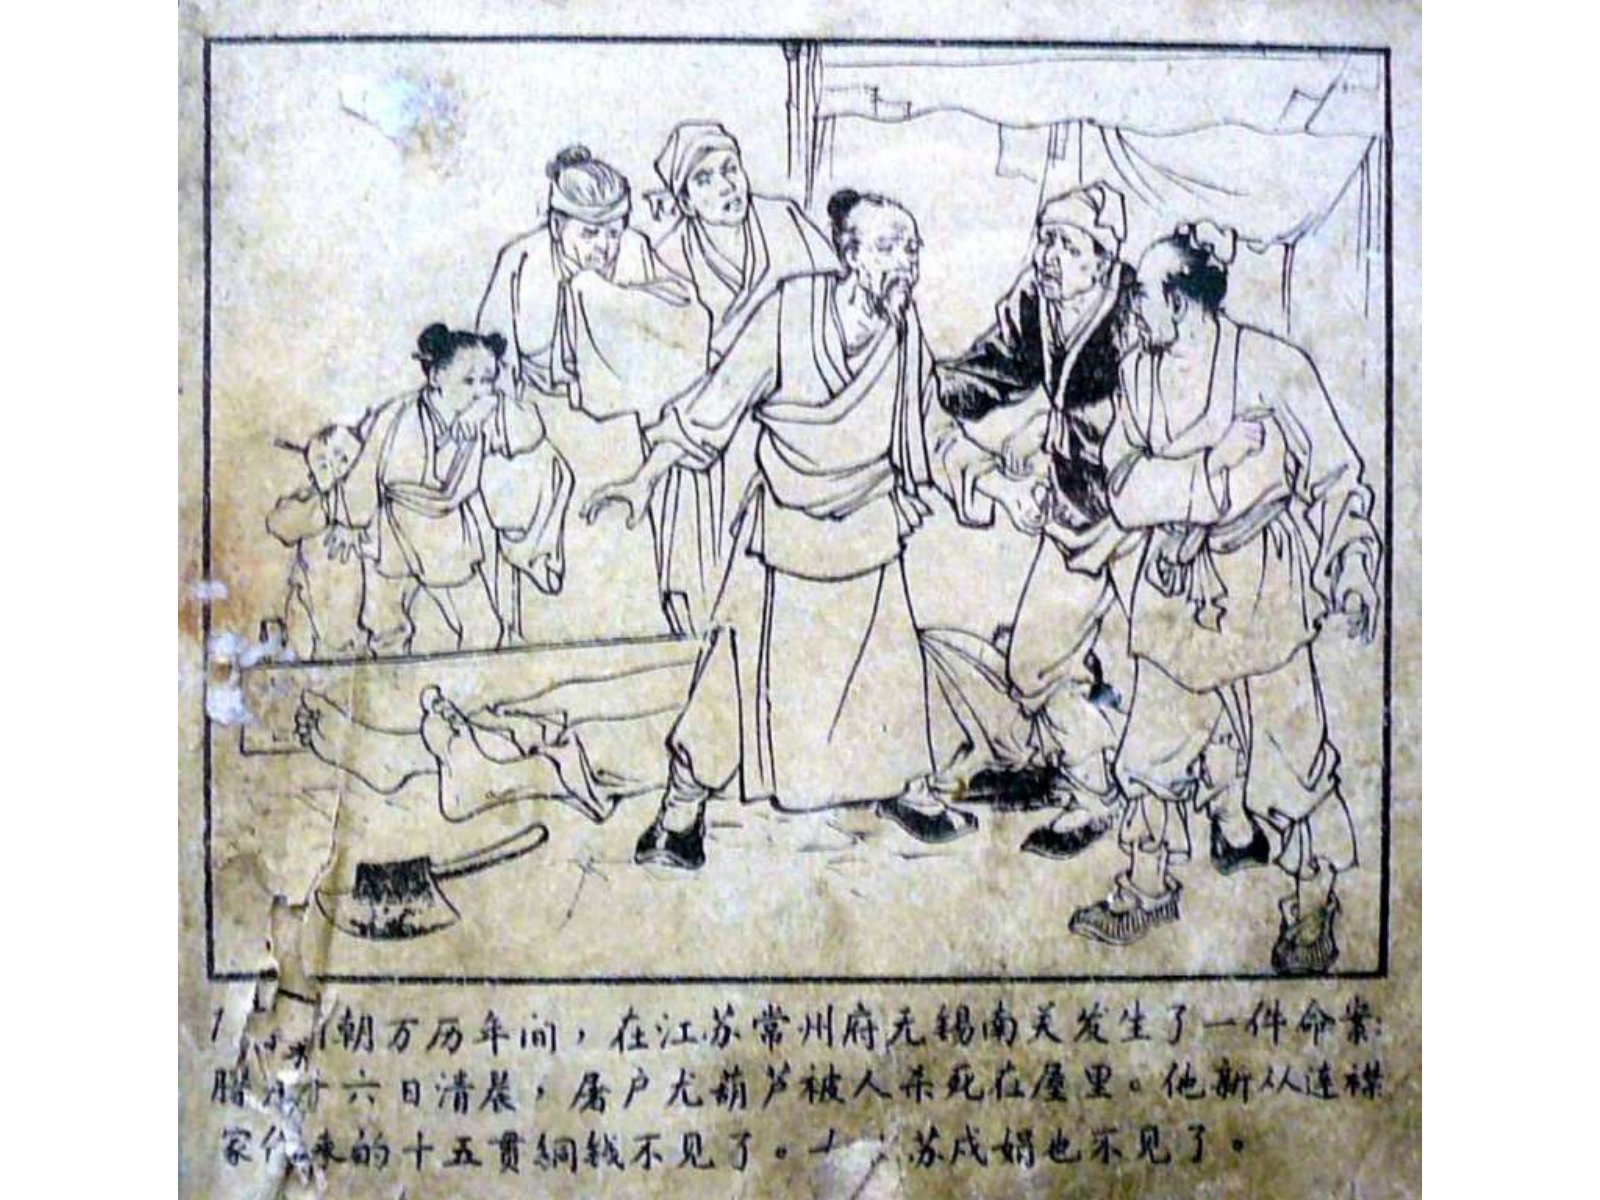 1 朝万历年间，在江苏常州府无锡南关发生了一件命案：
腊 十六日清晨，屠户尤葫芦被人杀死在屋里。他新从连襟
家 来的十五贯铜钱不见了。 苏戍娟也不见了。